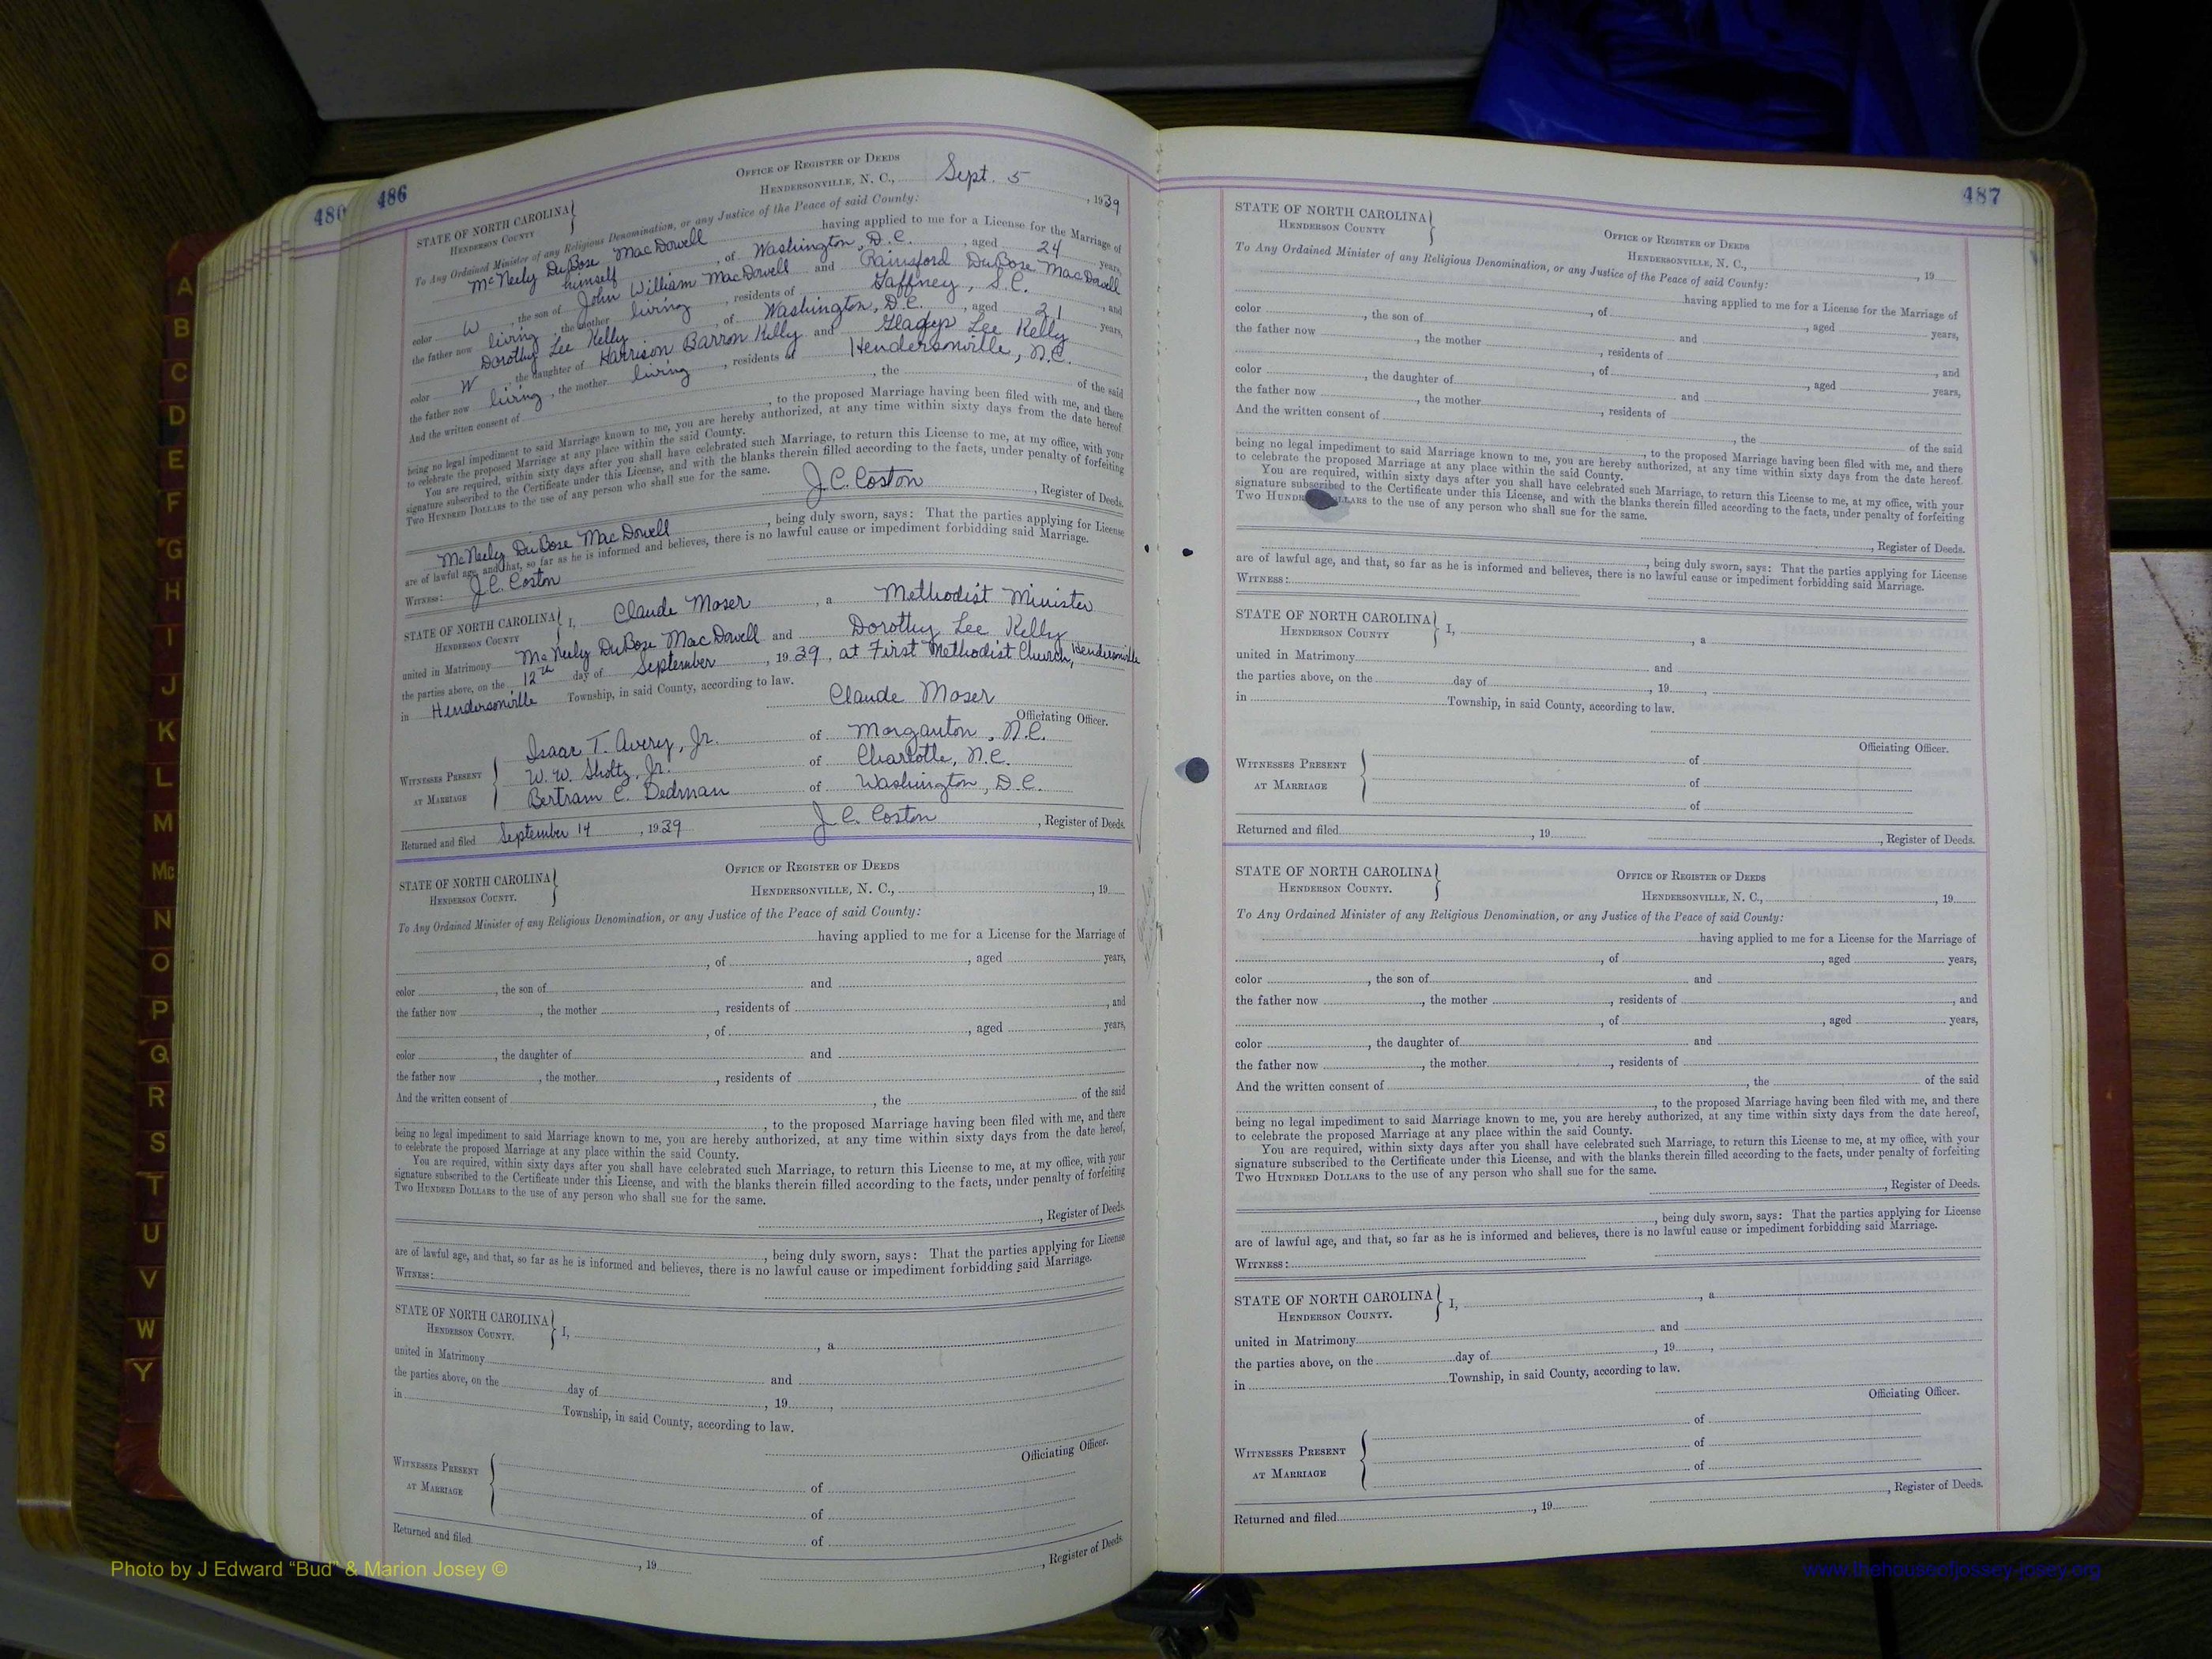 480 486
OFFICE OF REGISTER OF DEEDS
HENDERSONVILLE, N. C., Sept. 5, 1939
STATE OF NORTH CAROLINA
HENDERSON COUNTY
To Any Ordained Minister of any Religious Denomination, or any Justice of the Peace of said County:
McNeely DuBose MacDowell having applied to me for a License for the Marriage of
himself, of Washington, D.C., aged 24 years,
color W, the son of John William MacDowell and Rainsford DuBose MacDowell
the father now living, the mother living, residents of Gaffney, S.C., and
Dorothy Lee Kelly, of Washington, D.C., aged 21 years,
color W, the daughter of Harrison Barron Kelly and Gladys Lee Kelly
the father now living, the mother living, residents of Hendersonville, N.C.
And the written consent of , the of the said
, to the proposed Marriage having been filed with me, and there
being no legal impediment to said Marriage known to me, you are hereby authorized, at any time within sixty days from the date hereof
to celebrate the proposed Marriage at any place within the said County.
You are required, within sixty days after you shall have celebrated such Marriage, to return this License to me, at my office, with your
signature subscribed to the Certificate under this License, and with the blanks therein filled according to the facts, under penalty of forfeiting
TWO HUNDRED DOLLARS to the use of any person who shall sue for the same.
J.C. Coston, Register of Deeds.
McNeely DuBose MacDowell, being duly sworn, says: That the parties applying for License
are of lawful age, and that, so far as he is informed and believes, there is no lawful cause or impediment forbidding said Marriage.
WITNESS: J.C. Coston
STATE OF NORTH CAROLINA
HENDERSON COUNTY
I, Claude Moser, a Methodist Minister
united in Matrimony McNeely DuBose MacDowell and Dorothy Lee Kelly
the parties above, on the 12th day of September, 1939, at First Methodist Church, Hendersonville
in Hendersonville Township, in said County, according to law.
Claude Moser
Officiating Officer.
WITNESSES PRESENT
AT MARRIAGE
Isaac T. Avery, Jr. of Morganton, N.C.
W. W. Sholtz, Jr. of Charlotte, N.C.
Bertram C. Dedman of Washington, D.C.
Returned and filed September 14, 1939 J. C. Coston, Register of Deeds.
OFFICE OF REGISTER OF DEEDS
STATE OF NORTH CAROLINA
HENDERSON COUNTY.
HENDERSONVILLE, N. C., , 19
To Any Ordained Minister of any Religious Denomination, or any Justice of the Peace of said County:
having applied to me for a License for the Marriage of
, of , aged years,
color , the son of and
the father now , the mother , residents of , and
, of , aged years,
color , the daughter of and
the father now , the mother , residents of
And the written consent of , the of the said
, to the proposed Marriage having been filed with me, and there
being no legal impediment to said Marriage known to me, you are hereby authorized, at any time within sixty days from the date hereof,
to celebrate the proposed Marriage at any place within the said County.
You are required, within sixty days after you shall have celebrated such Marriage, to return this License to me, at my office, with your
signature subscribed to the Certificate under this License, and with the blanks therein filled according to the facts, under penalty of forfeiting
TWO HUNDRED DOLLARS to the use of any person who shall sue for the same.
, Register of Deeds.
, being duly sworn, says: That the parties applying for License
are of lawful age, and that, so far as he is informed and believes, there is no lawful cause or impediment forbidding said Marriage.
WITNESS:
STATE OF NORTH CAROLINA
HENDERSON COUNTY.
I, , a
united in Matrimony and
the parties above, on the day of , 19 ,
in Township, in said County, according to law.
Officiating Officer.
WITNESSES PRESENT
AT MARRIAGE
of
of
of
Returned and filed , 19 , Register of Deeds
487
STATE OF NORTH CAROLINA
HENDERSON COUNTY
OFFICE OF REGISTER OF DEEDS
HENDERSONVILLE, N. C., , 19
To Any Ordained Minister of any Religious Denomination, or any Justice of the Peace of said County:
having applied to me for a License for the Marriage of
, of , aged years,
color , the son of and
the father now , the mother , residents of , and
, of , aged years,
color , the daughter of and
the father now , the mother , residents of
And the written consent of , the of the said
, to the proposed Marriage having been filed with me, and there
being no legal impediment to said Marriage known to me, you are hereby authorized, at any time within sixty days from the date hereof.
to celebrate the proposed Marriage at any place within the said County.
You are required, within sixty days after you shall have celebrated such Marriage, to return this License to me, at my office, with your
signature subscribed to the Certificate under this License, and with the blanks therein filled according to the facts, under penalty of forfeiting
TWO HUND LARS to the use of any person who shall sue for the same.
, Register of Deeds.
, being duly sworn, says: That the parties applying for License
are of lawful age, and that, so far as he is informed and believes, there is no lawful cause or impediment forbidding said Marriage.
WITNESS:
STATE OF NORTH CAROLINA
HENDERSON COUNTY
I, , a
united in Matrimony and
the parties above, on the day of , 19 ,
in Township, in said County, according to law.
Officiating Officer.
WITNESSES PRESENT
AT MARRIAGE
of
of
of
Returned and filed , 19 , Register of Deeds.
STATE OF NORTH CAROLINA
HENDERSON COUNTY.
OFFICE OF REGISTER OF DEEDS
HENDERSONVILLE, N. C., , 19
To Any Ordained Minister of any Religious Denomination, or any Justice of the Peace of said County:
having applied to me for a License for the Marriage of
, of , aged years,
color , the son of and
the father now , the mother , residents of , and
, of , aged years,
color , the daughter of and
the father now , the mother , residents of
And the written consent of , the of the said
, to the proposed Marriage having been filed with me, and there
being no legal impediment to said Marriage known to me, you are hereby authorized, at any time within sixty days from the date hereof,
to celebrate the proposed Marriage at any place within the said County.
You are required, within sixty days after you shall have celebrated such Marriage, to return this License to me, at my office, with your
signature subscribed to the Certificate under this License, and with the blanks therein filled according to the facts, under penalty of forfeiting
TWO HUNDRED DOLLARS to the use of any person who shall sue for the same.
, Register of Deeds.
, being duly sworn, says: That the parties applying for License
are of lawful age, and that, so far as he is informed and believes, there is no lawful cause or impediment forbidding said Marriage.
WITNESS:
STATE OF NORTH CAROLINA
HENDERSON COUNTY.
I, , a
united in Matrimony and
the parties above, on the day of , 19 ,
in Township, in said County, according to law.
Officiating Officer.
WITNESSES PRESENT
AT MARRIAGE
of
of
of
Returned and filed , 19 , Register of Deeds.
A
B
C
D
E
F
G
H
I
J
K
L
M
Mc
N
O
P
Q
R
S
T
U
V
W
Y
Photo by J Edward “Bud” & Marion Josey ©
www.thehouseofjossey-josey.org